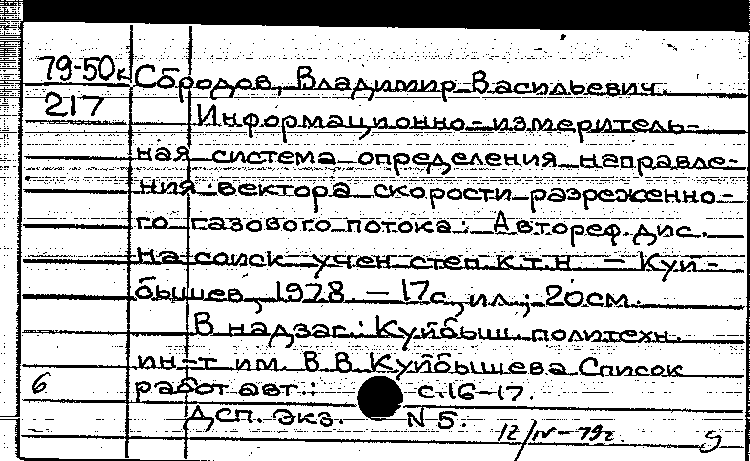 79-50к Сбродов, Владимир Васильевич.
217 Информационно-измеритель-
ная система определения направле-
ния вектора скорости разреженно-
го газового потока: Автореф. дис.
на соиск. учен. степ. к.т.н. — Куй-
бышев, 1978. — 17с., ил.; 20см.
В надзаг.: Куйбыш. политехн.
ин-т им. В.В. Куйбышева Список
6 работ авт.: с.16-17.
ДСП. Экз. N 5.
12/IV-79г.